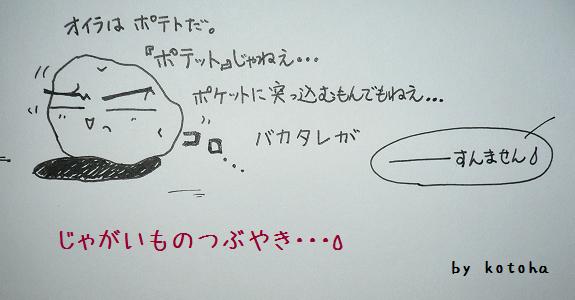 オイラは ポテトだ。
『ポテット』じゃねえ・・・
ポケットに突っ込むもんでもねえ・・・
バカタレが
コロ・・・
──すんません
じゃがいものつぶやき・・・
by kotoha